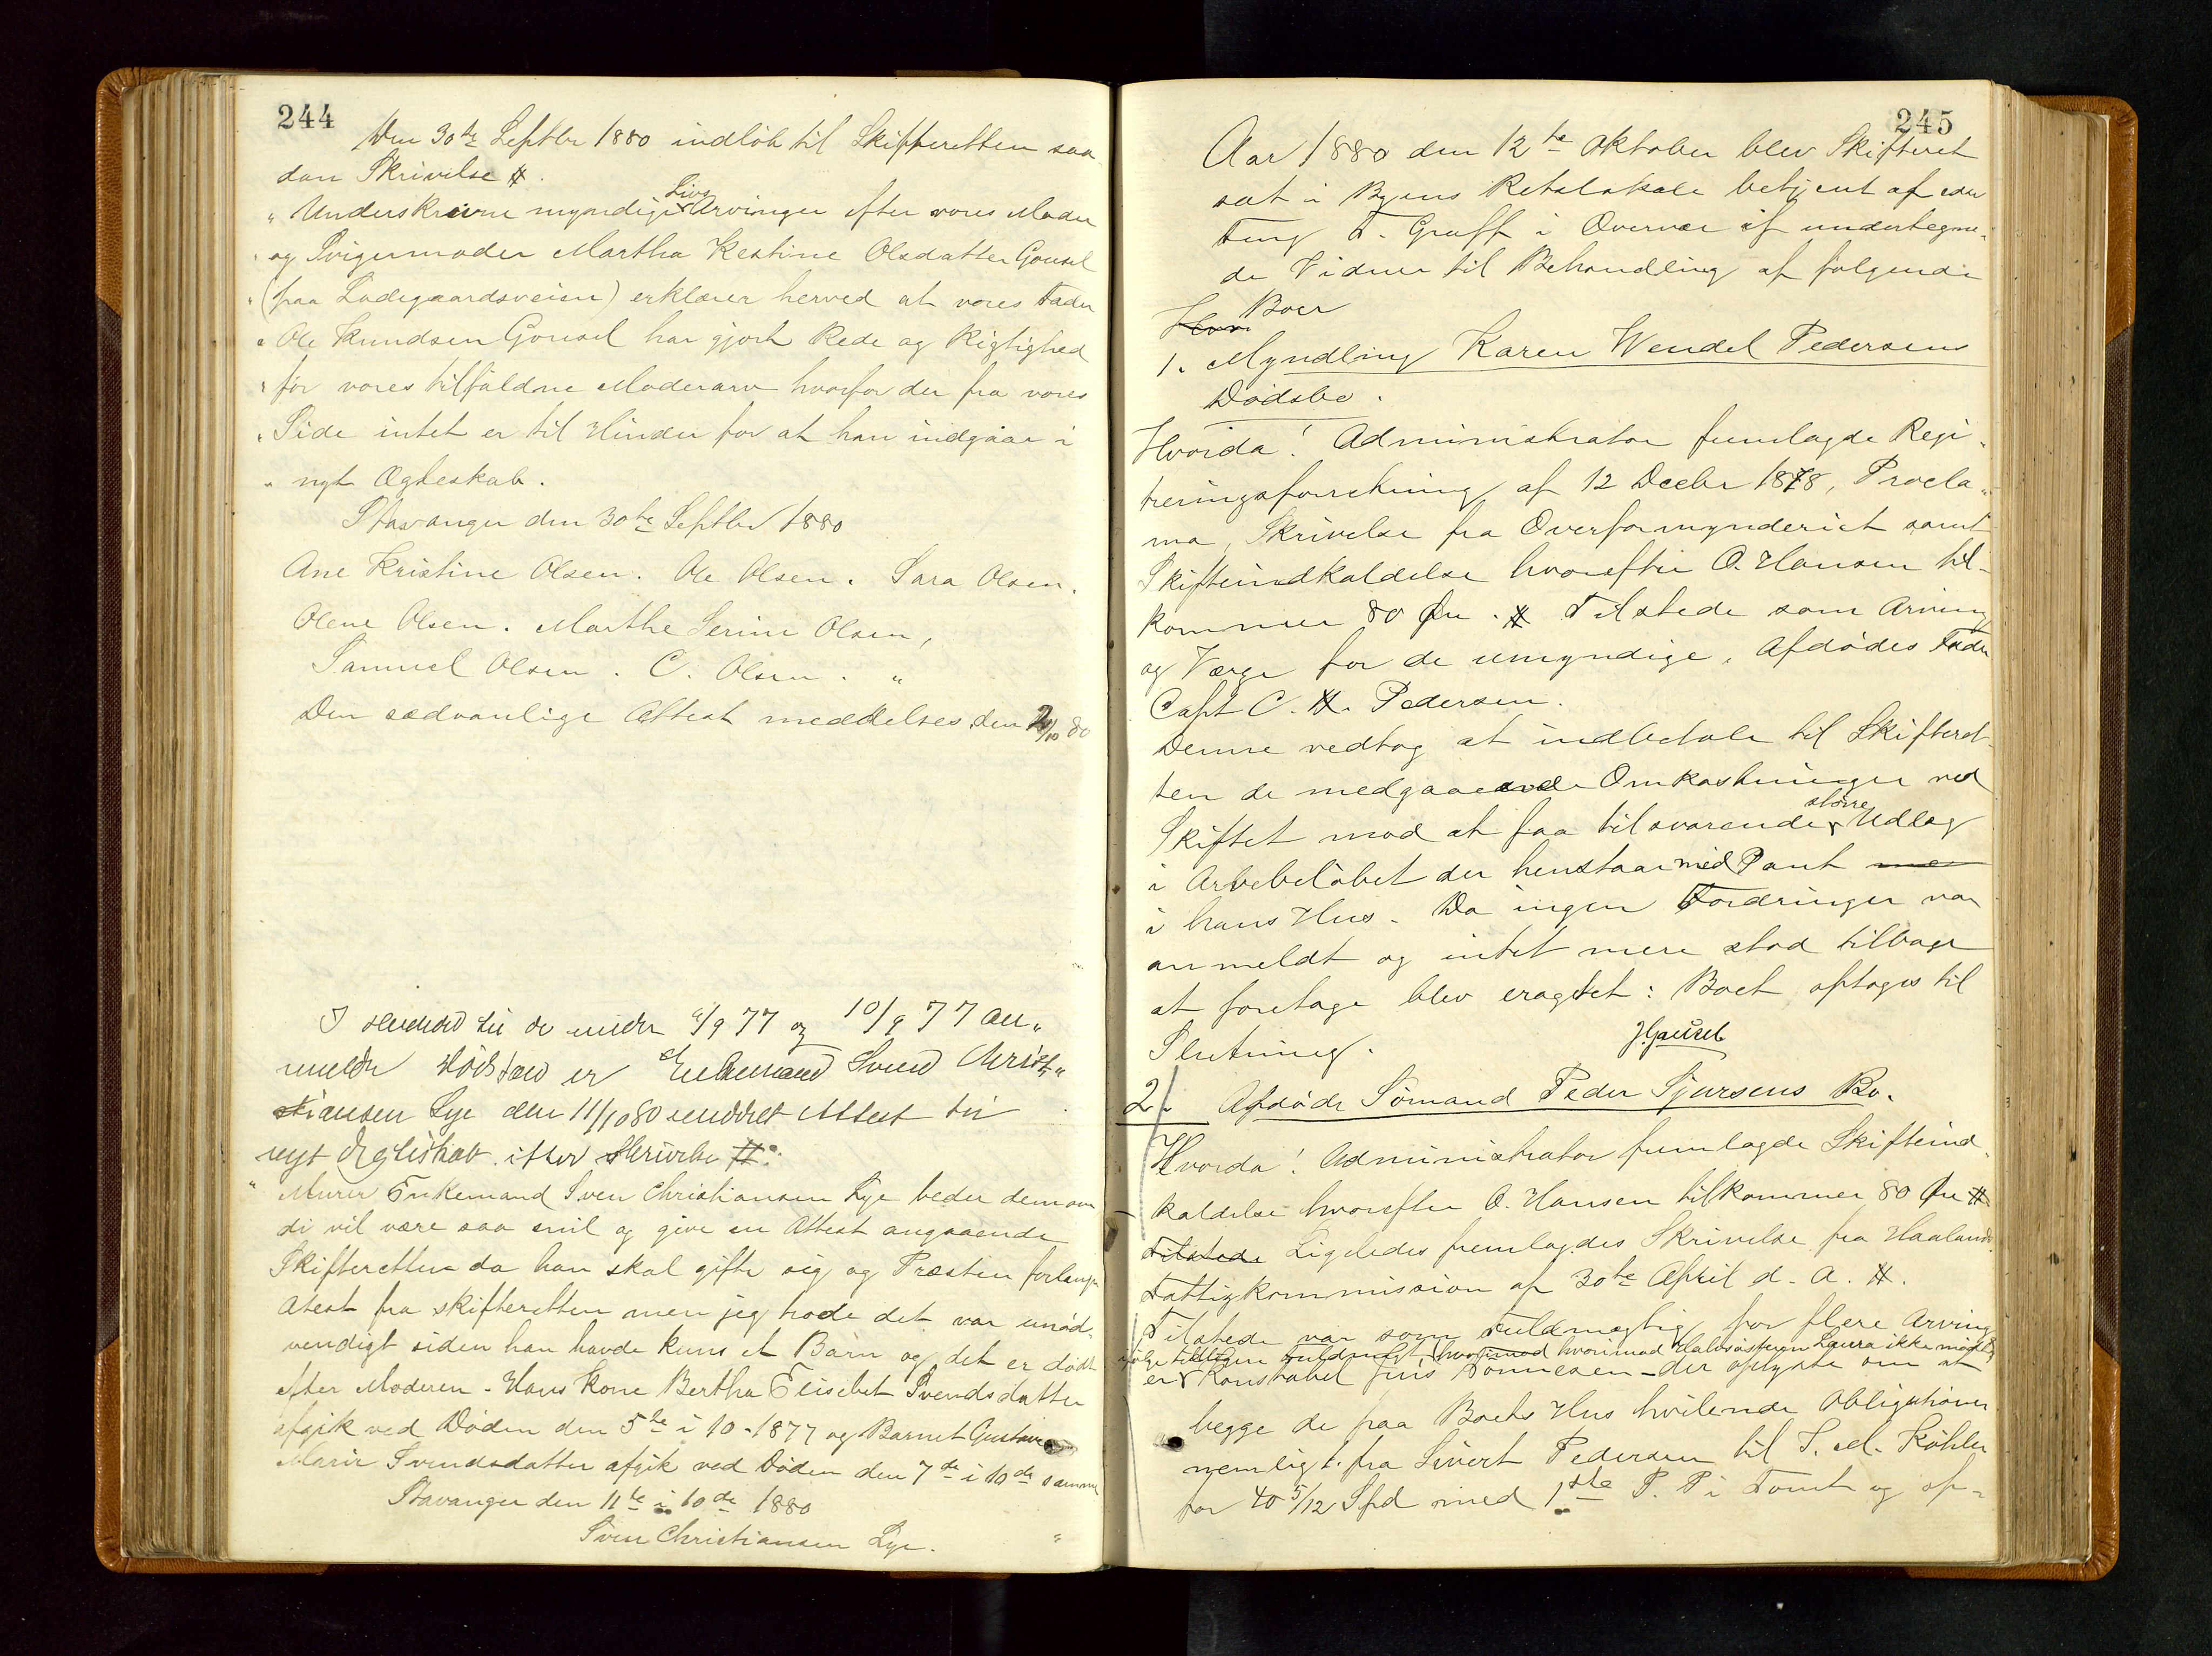 244
Den 30te Septbr 1880 indlöb til Skifteretten saa
dan Skrivelse #.
"Underskrevne myndige Livs Arvinger efter vores Moder
"og Svigermoder Martha Kestine Olsdatter Gausel
"(paa Ladegaardsveien) erklærer herved at vores Fader
"Ole Knudsen Gousel har gjort Rede og Rigtighed
"for vores tilfaldne Moderarv hvorfor der fra vores
"Side intet er til Hinder for at han indgaar i
"nyt Ægteskab.
Stavanger den 30te Septbr 1880
Ane Kristine Olsen. Ole Olsen. Sara Olsen.
Olene Olsen. Marthe Serine Olsen,
Samuel Olsen. C. Olsen. "
Den sædvanlige Attest meddeltes den 2/10 80
I Henhold til de under 6/9 77 og 10/9 77 an"
meldte Dödsfald er Enkemand Svend Christ"
iansen Lye den 11/10 80 meddelt Attest til
nyt Ægteskab efter Skrivelse #:
"Murer Enkemand Sven Christiansen Lye beder dem om
di vil være saa snil og give en Attest angaaende
Skifteretten da han skal gifte sig og Præsten forlanger
Atest fra skifteretten men jeg trode det var unöd"
vendigt siden han havde kuns et Barn og det er dödt
efter Moderen. Hans Kone Bertha Elisebet Svendsdatter
afgik ved Döden den 5te i 10 - 1877 og Barnet Gustava
Marie Svendsdatter afgik ved Döden den 7de i 10de samme
Stavanger den 11te i 10de 1880
Sven Christiansen Lye. "
245
Aar 1880 den 12te Oktober blev Skifteret
sat i Byens Retslokale betjent af edsv
Fuldm F. Graff i Overvær af undertegne"
de Vidner til Behandling af fölgende
Boer
1. Myndling Karen Wendel Pedersens
Dödsbo.
Hvorda! Administrator fremlagde Regi"
treringsforretning af 12 Decbr 1878, Procla"
ma, Skrivelse fra Overformynderiet samt
Skifteindkaldelse hvorefter O. Hansen til-
kommer 80 Öre. # Tilstede som Arving
og Værge for de umyndige, Afdödes Fader
Capt C. H. Pedersen.
Denne vedtog at indbetale til Skifteret-
ten de medgaaende Omkostninger ved
Skiftet mod at faa tilsvarende större Udlæg
i Arvebelöbet der henstaar med Pant me
i hans Hus. Da ingen Fordringer var
anmeldt og intet mere stod tilbage
at foretage blev eragtet: Boet optages til
Slutning.
JGausel
2. Afdöde Sömand Peder Sjursens Bo.
Hvorda! Administrator fremlagde Skifteind"
kaldelse hvorefter O. Hansen tilkommer 80 Öre #
Tilstede Ligeledes fremlagdes Skrivelse fra Haalands
Fattigkommission af 30te April d. A. #.
Tilstede var som Fuldmægtig for flere Arving
ifölge tidligere Fuldmagt hvorimod hvorimod Halvsösteren Laura ikke mödte
er Konstabel Jens Tönnesen - der oplyste om at
begge de paa Boets Hus hvilende Obligationer
nemlig 1. fra Sivert Pedersen til S. M. Köhler
for 40 5/12 Spd med 1ste P. P i Tomt og op-